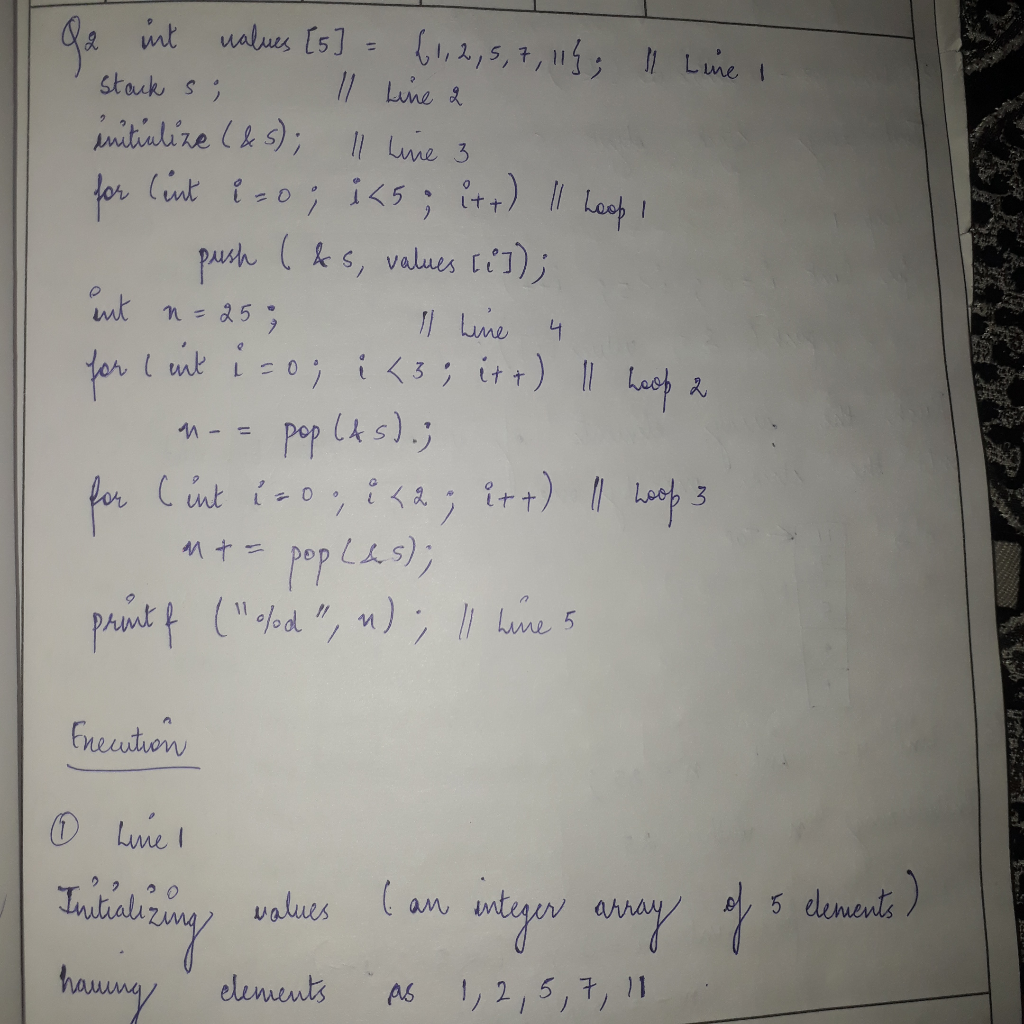 Q2 int values [5] = {1, 2, 5, 7, 11}; // Line 1
stack s; // Line 2
initialize (& s); // Line 3
for (int i = 0; i<5; i++) // Loop 1
push ( & s, values [i]);
int n = 25; // Line 4
for (int i = 0; i <3; i++) // Loop 2
n - = pop (& s).;
for (int i = 0; i <2; i++) // Loop 3
n + = pop (& s);
printf ("%d", n); // Line 5
Execution
① Line 1
Initializing values (an integer array of 5 elements)
having elements as 1, 2, 5, 7, 11